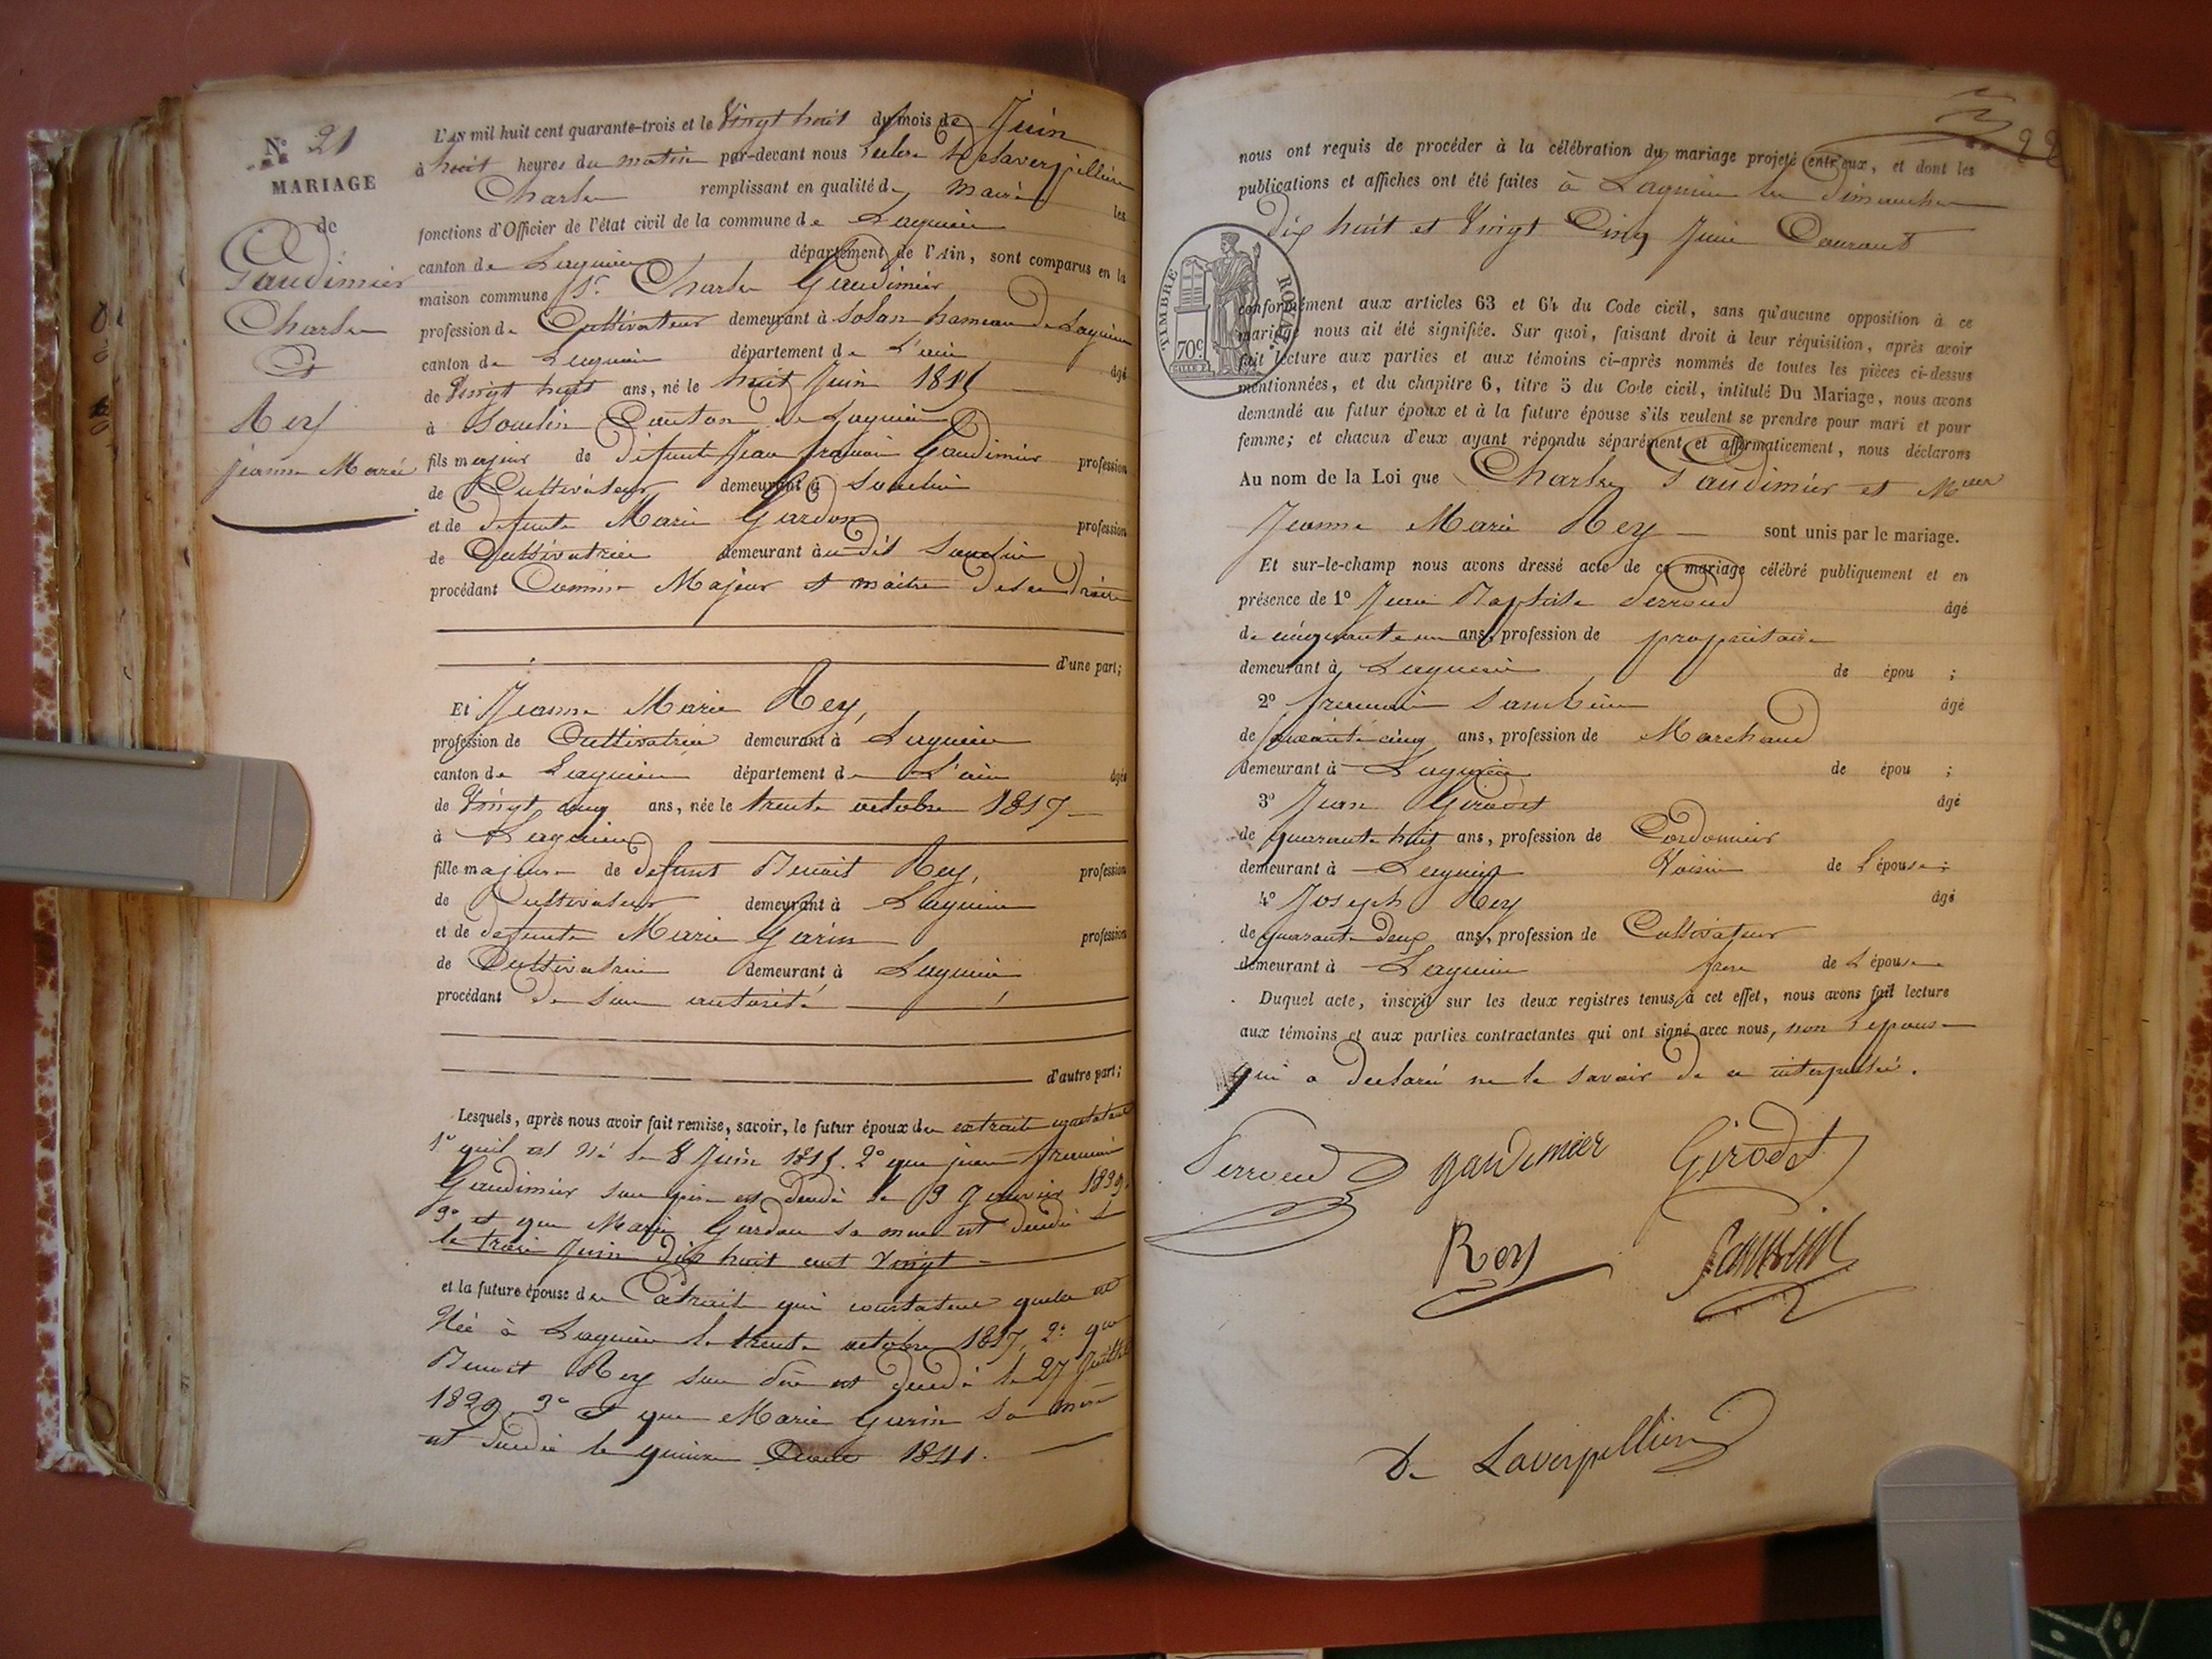 N° 21
MARIAGE
de
Gaudimier
Charles
&
Rey
jeanne Marie
L'AN mil huit cent quarante-trois et le Vingt huit du mois de Juin
à huit heures du matin par-devant nous Delaverpillière
Charles remplissant en qualité de Maire les
fonctions d'Officier de l'état civil de la commune de Lagnieu
canton de Lagnieu département de l'Ain, sont comparus en la
maison commune Sr Charles Gaudimier
profession de Cultivateur demeurant à Solan hameau de Lagnieu
canton de Lagnieu département de L'ain âgé
de Vingt huit ans, né le huit Juin 1815
à Souclin Canton de Lagnieu
fils majeur de défunt Jean françois Gaudimier profession
de Cultivateur demeurant à Souclin
et de défunte Marie Gardon profession
de Cultivatrice demeurant au dit Souclin
procédant Comme Majeur et maitre de ses droits
d'une part;
Et Jeanne Marie Rey,
profession de Cultivatrice demeurant à Lagnieu
canton de Lagnieu département de L'ain âgée
de Vingt cinq ans, née le trente octobre 1817
à Lagnieu
fille majeure de défunt Benoit Rey, profession
de Cultivateur demeurant à Lagnieu
et de défunte Marie Garin profession
de Cultivatrice demeurant à Lagnieu
procédant de son autorité
d'autre part;
Lesquels, après nous avoir fait remise, savoir, le futur époux des extraits constatant
1° qu'il est né le 8 Juin 1815. 2° que jean francois
Gaudimier son père est décédé le 9 Janvier 1839.
3° et que Marie Gardon sa mère est décédée le
le trois Juin dix huit cent Vingt
et la future épouse des Extraits qui constatent quelle est
Née à Lagnieu le trente octobre 1817, 2° que
Benoit Rey son père est décédé le 27 Juillet
1829. 3° Et que Marie Garin sa mère
est décédée le quinze 1841.
22
nous ont requis de procéder à la célébration du mariage projeté entr'eux, et dont les
publications et affiches ont été faites à Lagnieu les dimanches
dix huit et Vingt Cinq Juin Courant
TIMBRE ROYAL
70c
conformément aux articles 63 et 64 du Code civil, sans qu'aucune opposition à ce
mariage nous ait été signifiée. Sur quoi, faisant droit à leur réquisition, après avoir
fait lecture aux parties et aux témoins ci-après nommés de toutes les pièces ci-dessus
mentionnées, et du chapitre 6, titre 5 du Code civil, intitulé Du Mariage, nous avons
demandé au futur époux et à la future épouse s'ils veulent se prendre pour mari et pour
femme; et chacun d'eux ayant répondu séparément et affirmativement, nous déclarons
Au nom de la Loi que Charles Gaudimier et Melle
Jeanne Marie Rey sont unis par le mariage.
Et sur-le-champ nous avons dressé acte de ce mariage célébré publiquement et en
présence de 1° Jean Baptiste Perroud âgé
de cinquante un ans, profession de propriétaire
demeurant à Lagnieu de épou ;
2° francois Sambin âgé
de cinq ans, profession de Marchand
demeurant à Lagnieu de épou ;
3° Jean Girodet âgé
de quarante huit ans, profession de Cordonnier
demeurant à Lagnieu Voisin de L'épouse;
4° Joseph Rey âgé
de quarante deux ans, profession de Cultivateur
demeurant à Lagnieu frere de L'épouse
Duquel acte, inscrit sur les deux registres tenus à cet effet, nous avons fait lecture
aux témoins et aux parties contractantes qui ont signé avec nous, non l'épouse
qui a déclaré ne le savoir de ce interpellée.
Perroud gaudimier Girodet
Rey Sambin
De Laverpillière